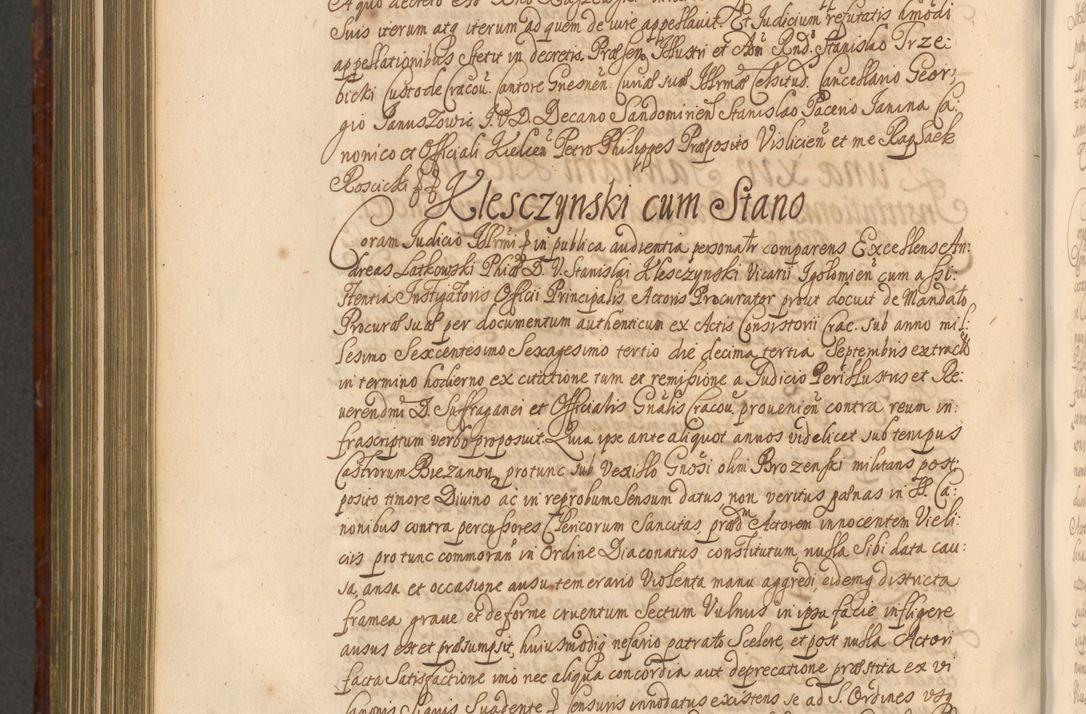 Suis iterum atq iterum ad quem de iure appellauit. Et Iudicium refutatis hmodi
appellationibus stetit in decretis. Præsen. Illustri et Adm Rndo Stanislao Trze:
bicki Custode Cracou. Cantore Gnesnen. Curiæ suæ Illrmæ Celsitud. Cancellario Geor,
gio Januszowic I.V.D. Decano Sandomirien Stanislao Paceno Janina Ca,
nonico et Officiali Kielcen Petro Philippes Præposito Vislicien et me Raphaele
Roscicki
Klesczynski cum Stano
Coram Iudicio Illrmi P in publica audientia personatr comparens Excellens An,
dreas Latkowski Phiæ D. V. Stanislai Klesczynski Vicarii Igolomien cum assi,
stentia Instigatoris Officii Principalis Actoris Procurator prout docuit de Mandato
Procuræ suæ per documentum authenticum ex Actis Consistorii Crac. sub anno mil,
lesimo Sexcentesimo Sexagesimo tertio die decima tertia Septembris extracto
in termino hodierno ex citatione tum et remissione a Iudicio Perillustris et Re:
uerendmi D. Suffraganei et Officialis Gnalis Cracou prouenien contra reum in:
frascriptum verbo proposuit. Quia ipse ante aliquot annos videlicet sub tempus
Castrorum Biezanon protunc sub Vexillo Gnosi olim Brozenski militans post,
posito timore Diuino ac in reprobum sensum datus non veritus pænas in SS. Ca,
nonibus contra percussores Clericorum Sancitas præd Actorem innocentem Vieli,
ciis pro tunc commoran in Ordine Diaconatus constitutum nulla sibi data cau:
sa, ansa et occasione ausu temerario Violenta manu aggredi, eidemq districta
framea graue et deforme cruentum Sectum Vulnus in ipsa facie infligere
ausus est et præsumpsit, huiusmodiq nefario patrato Scelere, et post nulla Actori
facta Satisfactione imo nec aliqua concordia aut deprecatione præstita ex vi
Canonis Siquis Suadente P Censuris innodatus existens se ad S. Ordines vsq